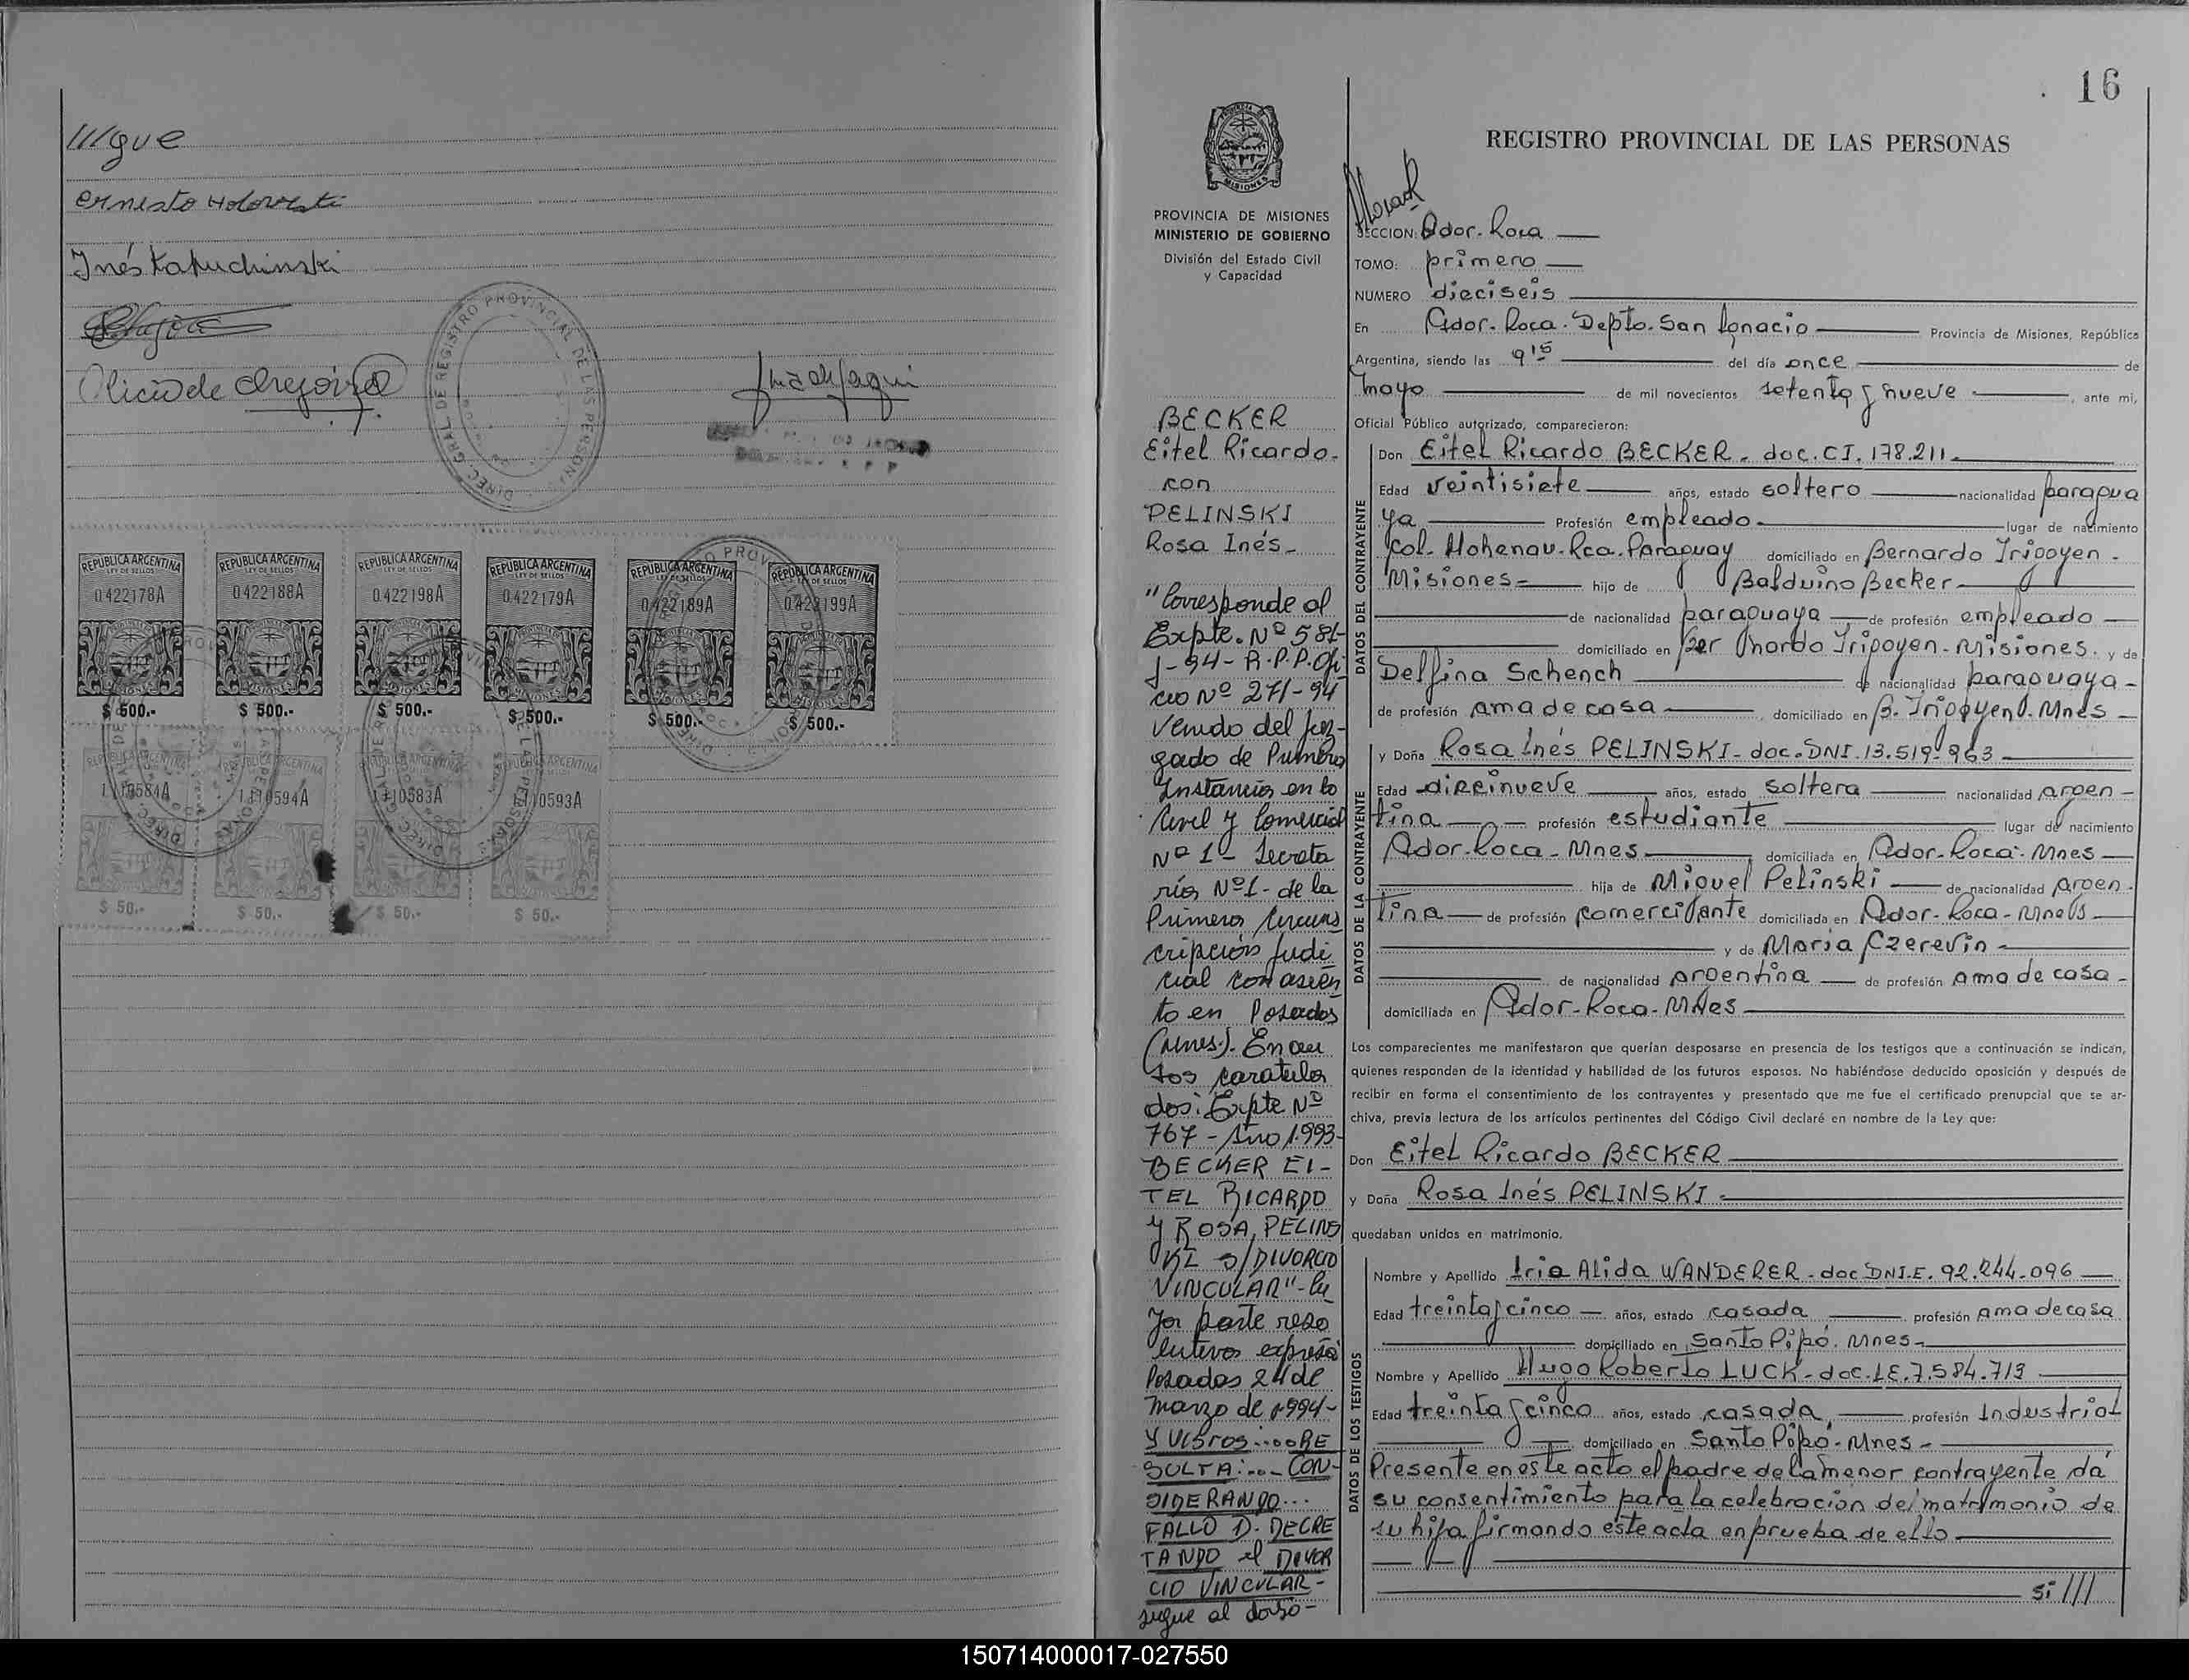 ///gue
ernesto
Inés Kapuchinski
Alicia de
DIREC. GRAL. DE REGISTRO PROVINCIAL DE LAS PERSONAS
REPUBLICA ARGENTINA
LEY DE SELLOS
0422178A
$ 500.-
REPUBLICA ARGENTINA
LEY DE SELLOS
0422188A
$ 500.-
REPUBLICA ARGENTINA
LEY DE SELLOS
0422198A
$ 500.-
REPUBLICA ARGENTINA
LEY DE SELLOS
0422179A
$ 500.-
REPUBLICA ARGENTINA
LEY DE SELLOS
0422189A
$ 500.-
REPUBLICA ARGENTINA
LEY DE SELLOS
0422199A
$ 500.-
REPUBLICA ARGENTINA
1110584A
$ 50.-
REPUBLICA ARGENTINA
1110594A
$ 50.-
REPUBLICA ARGENTINA
1110583A
$ 50.-
REPUBLICA ARGENTINA
1110593A
$ 50.-
16
MISIONES
PROVINCIA DE MISIONES
MINISTERIO DE GOBIERNO
División del Estado Civil
y Capacidad
BECKER
Eitel Ricardo-
con
PELINSKI
Rosa Inés-
"Corresponde al
Expte. Nº 581-
J-94- R.P.P. Ofi
cio Nº 271-94
venido del Juz-
gado de Primera
Instancia en lo
Civil y Comercial
Nº 1- Secreta
ría Nº1- de la
Primera Circuns
cripción Judi
cial con asien
to en Posadas
(Mnes.). En au
tos caratula
dos: Expte Nº
767-Año 1.993-
BECKER EI-
TEL RICARDO
Y ROSA PELINS
KI S/DIVORCIO
VINCULAR"- Cu
ya parte reso
lutiva expresa
Posadas 24 de
marzo de 1994-
Y VISTOS:....RE
SULTA:...- CON-
SIDERANDO...
FALLO 1)- DECRE
TANDO el DIVOR
CIO VINCULAR-
sigue al dorso-
REGISTRO PROVINCIAL DE LAS PERSONAS
SECCION: Gdor. Roca
TOMO: primero
NUMERO dieciseis
En Gdor. Roca. Depto. San Ignacio Provincia de Misiones, República
Argentina, siendo las 9 15 del día once de
mayo de mil novecientos setenta y nueve, ante mi,
Oficial Público autorizado, comparecieron:
DATOS DEL CONTRAYENTE
Don Eitel Ricardo BECKER - doc. CI. 178.211.
Edad veintisiete años, estado soltero nacionalidad paragua
ya Profesión empleado lugar de nacimiento
Col. Hohenau. Rca. Paraguay domiciliado en Bernardo Irigoyen-
Misiones- hijo de Balduino Becker
de nacionalidad paraguaya de profesión empleado
domiciliado en Irigoyen-Misiones. y de
Delfina Schench de nacionalidad paraguaya-
de profesión ama de casa domiciliado en B. Irigoyen. Mnes
DATOS DE LA CONTRAYENTE
y Doña Rosa Inés PELINSKI - doc. DNI. 13.519-963
Edad diecinueve años, estado soltera nacionalidad argen-
tina profesión estudiante lugar de nacimiento
Gdor. Roca - Mnes domiciliada en Gdor- Roca. Mnes
hija de Miguel Pelinski de nacionalidad argen-
tina de profesión comerciante domiciliada en Gdor- Roca - Mnes
y de María Czerevin
de nacionalidad argentina de profesión ama de casa-
domiciliada en Gdor-Roca-Mnes
Los comparecientes me manifestaron que querían desposarse en presencia de los testigos que a continuación se indican,
quienes responden de la identidad y habilidad de los futuros esposos. No habiéndose deducido oposición y después de
recibir en forma el consentimiento de los contrayentes y presentado que me fue el certificado prenupcial que se ar-
chiva, previa lectura de los artículos pertinentes del Código Civil declaré en nombre de la Ley que:
Don Eitel Ricardo BECKER
y Doña Rosa Inés PELINSKI
quedaban unidos en matrimonio.
DATOS DE LOS TESTIGOS
Nombre y Apellido Iria Alida WANDERER - doc DNI.E. 92.244.096
Edad treinta y cinco años, estado casada profesión ama de casa
domiciliado en Santo Pipó. Mnes-
Nombre y Apellido Hugo Roberto LUCK - doc. LE. 7.584.713
Edad treinta y cinco años, estado casada, profesión Industrial
domiciliado en Santo Pipó- Mnes-
Presente en este acto el padre de la menor contrayente dá
su consentimiento para la celebración del matrimonio de
su hija firmando este acta en prueba de ello
Si ///
150714000017-027550